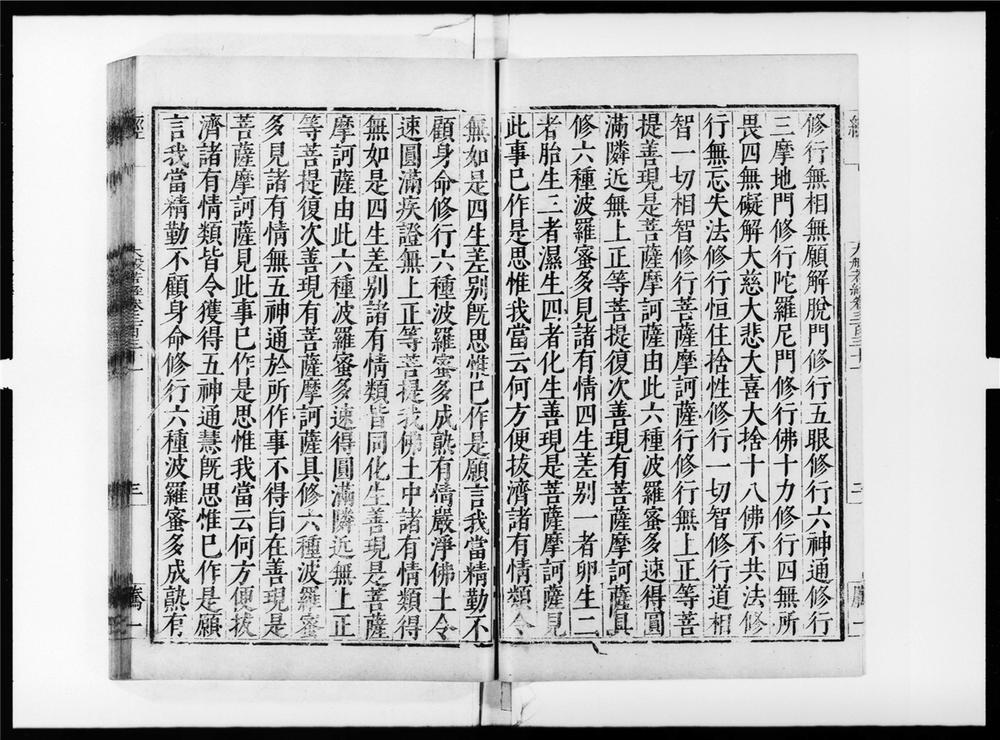 修行無相無願解脫門修行五眼修行六神通修行
三摩地門修行陀羅尼門修行佛十力修行四無所
畏四無礙解大慈大悲大喜大捨十八佛不共法修
行無忘失法修行恒住捨性修行一切智修行道相
智一切相智修行菩薩摩訶薩行修行無上正等菩
提善現是菩薩摩訶薩由此六種波羅蜜多速得圓
滿隣近無上正等菩提復次善現有菩薩摩訶薩具
修六種波羅蜜多見諸有情四生差別一者卵生二
者胎生三者濕生四者化生善現是菩薩摩訶薩見
此事已作是思惟我當云何方便拔濟諸有情類令
無如是四生差別既思惟已作是願言我當精勤不
顧身命修行六種波羅蜜多成熟有情嚴淨佛土令
速圓滿疾證無上正等菩提我佛土中諸有情類得
無如是四生差別諸有情類皆同化生善現是菩薩
摩訶薩由此六種波羅蜜多速得圓滿隣近無上正
等菩提復次善現有菩薩摩訶薩具修六種波羅蜜
多見諸有情無五神通於所作事不得自在善現是
菩薩摩訶薩見此事已作是思惟我當云何方便拔
濟諸有情類皆令獲得五神通慧既思惟已作是願
言我當精勤不顧身命修行六種波羅蜜多成熟有